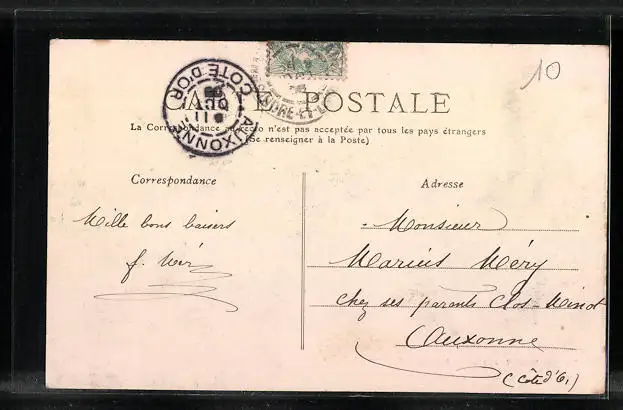 10
CARTE POSTALE
AUXONNE
CÔTE D'OR
INDRE-ET-L
La Correspondance au recto n'est pas acceptée par tous les pays étrangers
(Se renseigner à la Poste)
Correspondance
Adresse
Mille bons baisers
f. Méry
Monsieur
Marius Méry
chez ses parents Clos-Minot
Auxonne
(Côte d'Or)